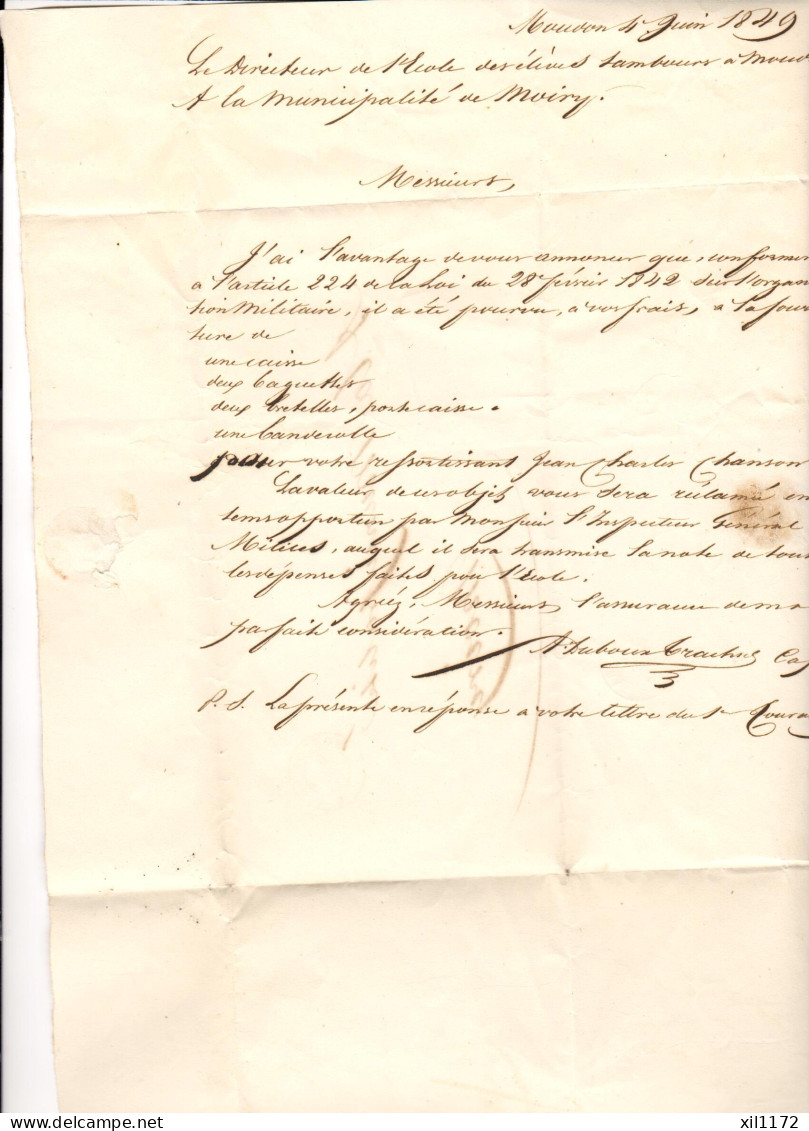 Moudon 4e Juin 1849
Le Directeur de l'Ecole des élèves tambours a Moud
A la Municipalité de Moiry.
Messieurs,
J'ai l'avantage de vous annoncer que, conformé
à l'article 224 de la Loi du 28e février 1842 sur l'organ
tion Militaire, il a été pourvu, à vos frais, à la four
ture de
une caisse
deux baguettes
deux bretelles, porte caisse.
une banderolle
pour votre ressortissant Jean Charles Chanson
La valeur de ces objets vous sera réclamée en
tems opportun par Monsieur l'Inspecteur Général
Milices, auquel il sera transmise la note de tous
les dépenses faites pour l'Ecole.
Agréez, Messieurs, l'assurance de ma
parfaite considération.
A. Duboux Cap
P. S. La présente en réponse a votre lettre du 1e Coura
xil1172